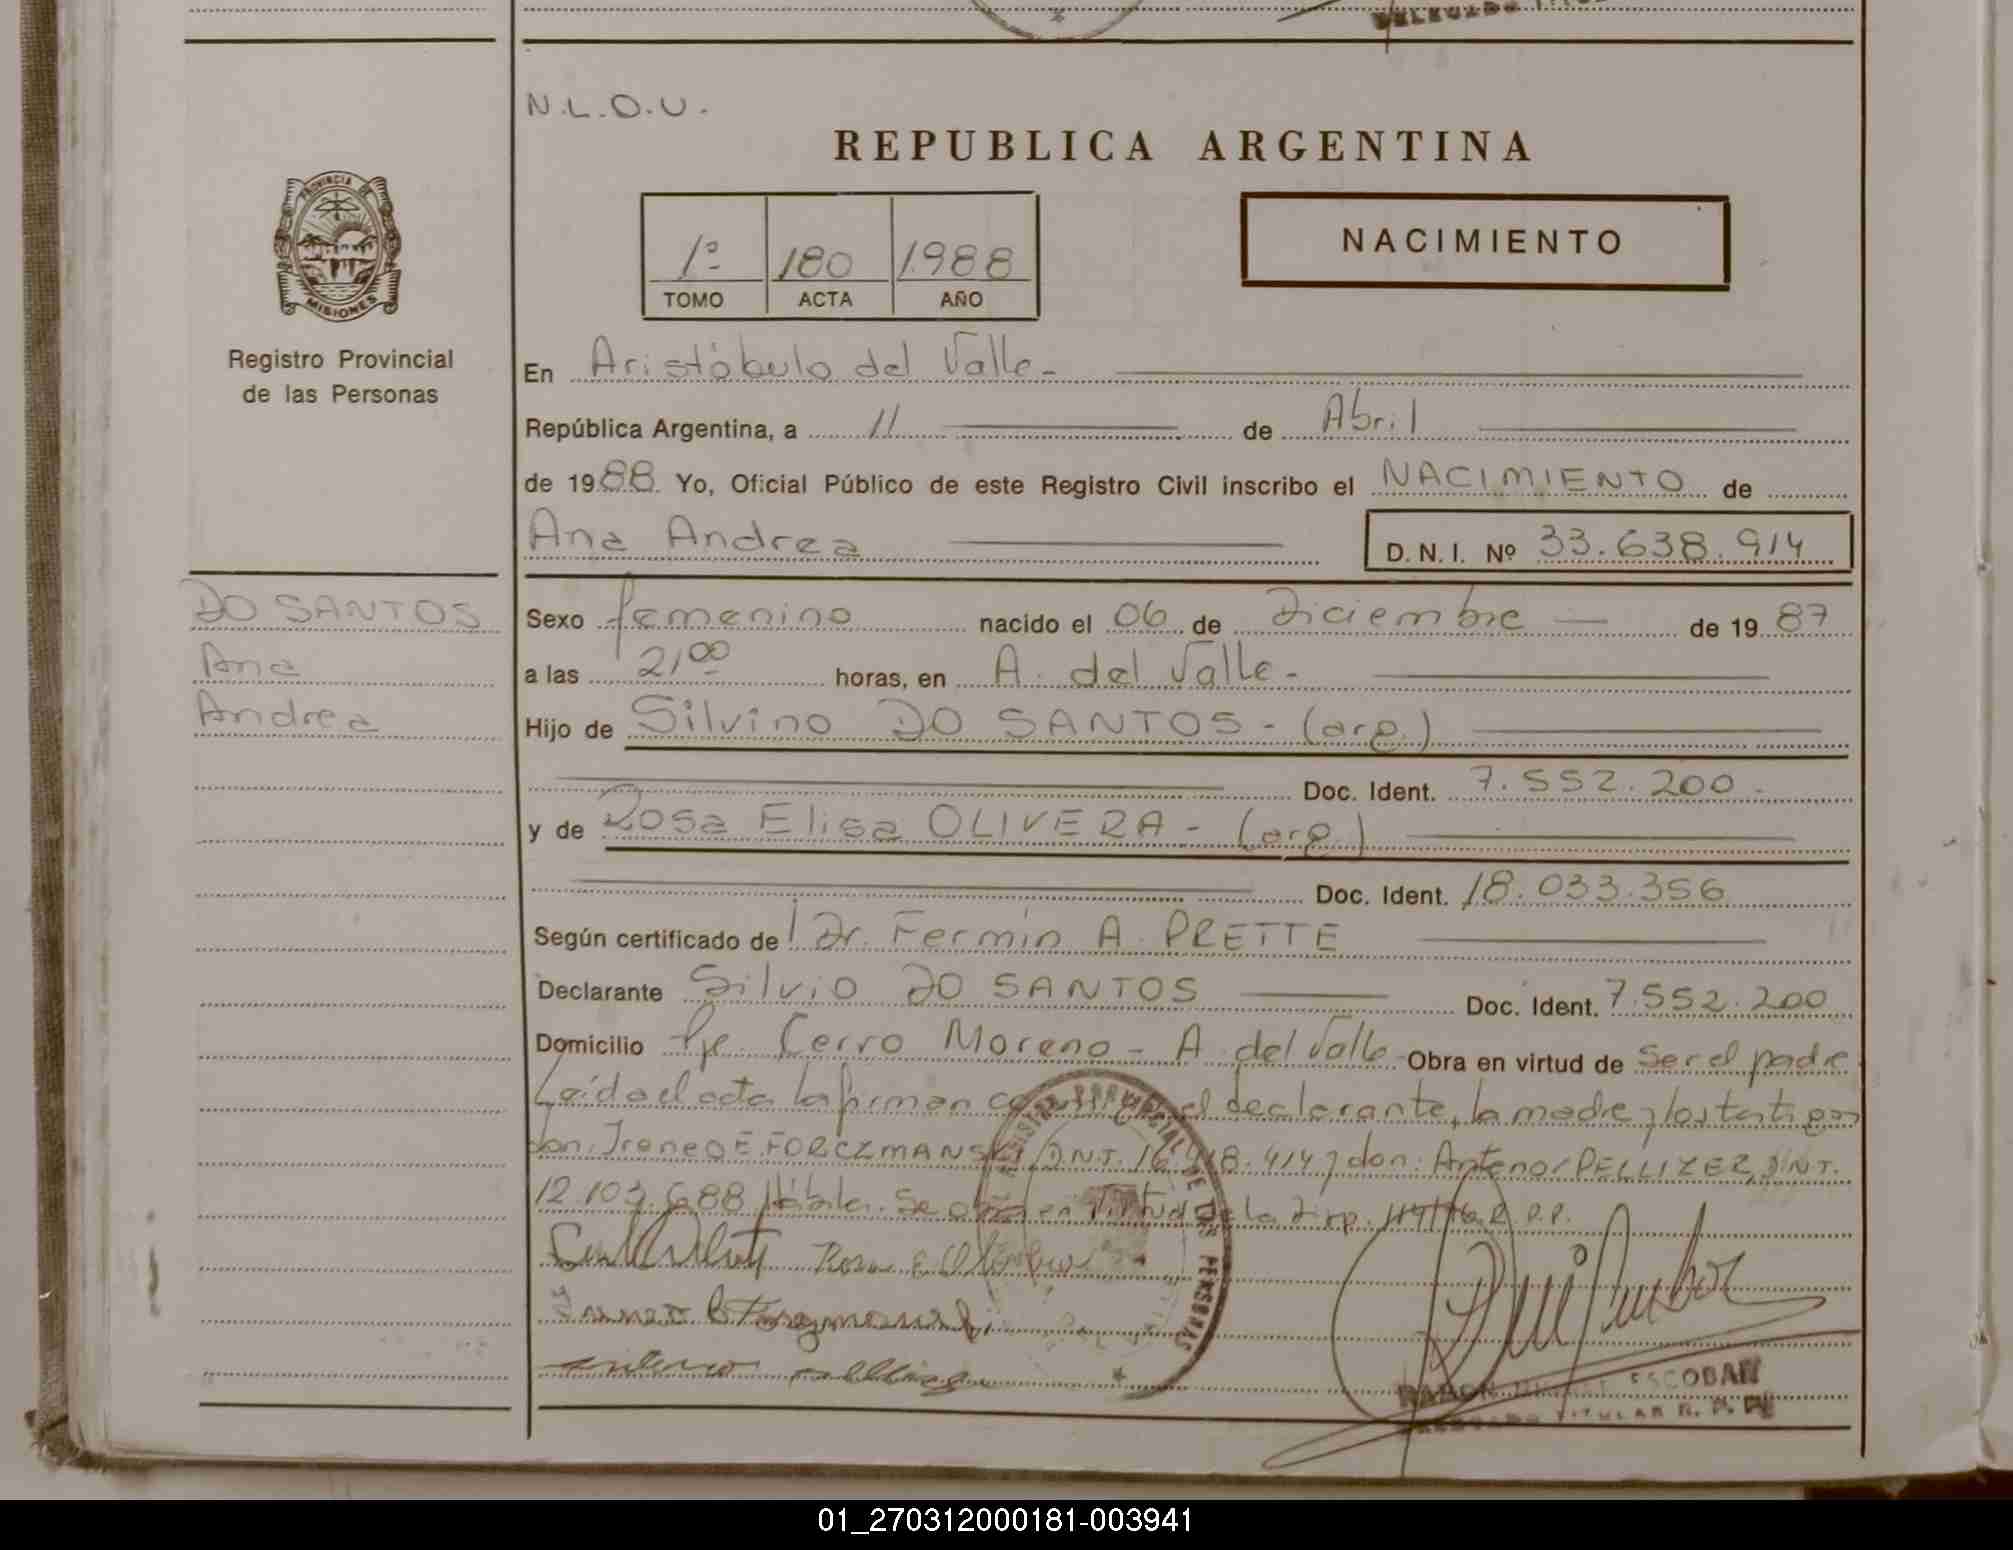 N.L.O.U.
REPUBLICA ARGENTINA
1º 180 1988
TOMO ACTA AÑO
NACIMIENTO
PROVINCIA DE
MISIONES
Registro Provincial
de las Personas
En Aristóbulo del Valle.-
República Argentina, a 11 de Abril
de 1988 Yo, Oficial Público de este Registro Civil inscribo el NACIMIENTO de
Ana Andrea D. N. I. Nº 33.638.914
DO SANTOS
Ana
Andrea
Sexo femenino nacido el 06 de Diciembre de 1987
a las 21,00 horas, en A. del Valle.-
Hijo de Silvino DO SANTOS - (arg.)
Doc. Ident. 7.552.200.
y de Rosa Elisa OLIVERA - (arg.)
Doc. Ident. 18.033.356
Según certificado de Dr. Fermin A. PRETTE
Declarante Silvio DO SANTOS Doc. Ident. 7.552.200
Domicilio Pje. Cerro Moreno - A. del Valle. Obra en virtud de Ser el padre
Leída el acta la firman el declarante, la madre y los testigos
don: Ireneo E. FORCZMANSKI DNI. 16. 8.414 y don: Antenor PELLIZER, DNI.
12.103.688 Hábiles. Se en virtud la Disp. 114/76 R.P.P.
REGISTRO PROVINCIAL DE LAS PERSONAS
RAMON ESCOBAR
DELEGADO TITULAR R. P. P.
01_270312000181-003941